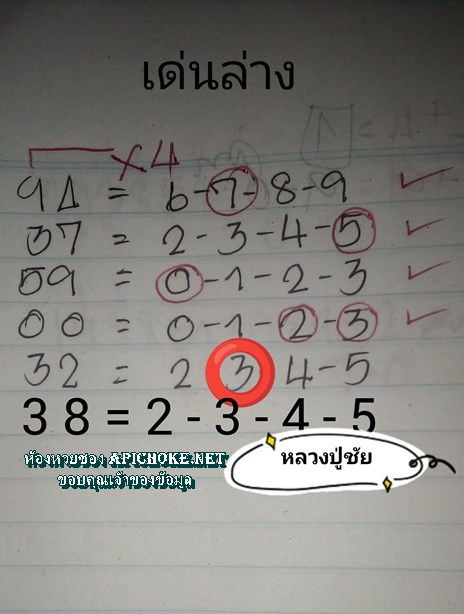 เด่นล่าง
×4
94 = 6-7-8-9
37 = 2-3-4-5
59 = 0-1-2-3
00 = 0-1-2-3
32 = 2 3 4-5
38 = 2 - 3 - 4 - 5
ห้องหวยซอง APICHOKE.NET
ขอบคุณเจ้าของข้อมูล
หลวงปู่ชัย